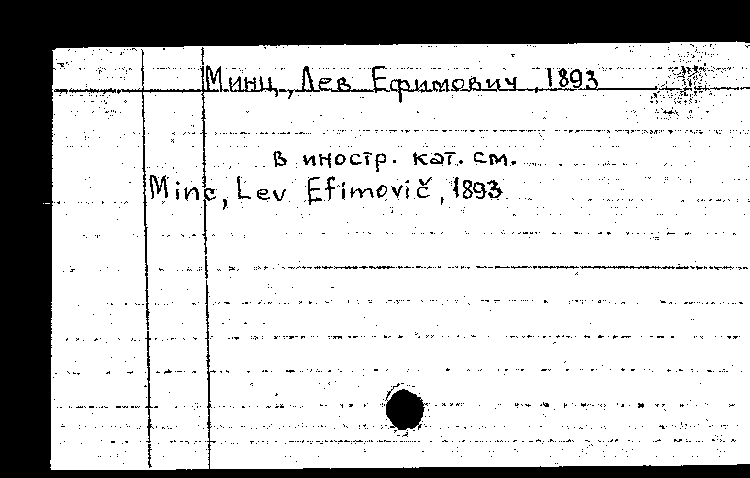 Минц, Лев Ефимович, 1893
в иностр. кат. см.
Minc, Lev Efimovič, 1893